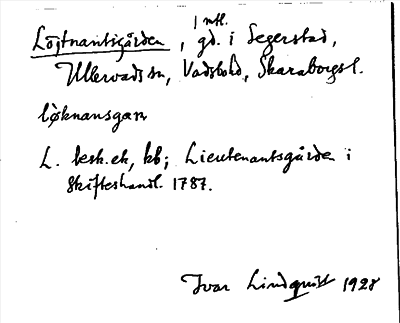 1 mtl.
Löjtnantsgården, gd. i Segerstad,
Ullervads sn, Vadsbohd, Skaraborgs l.
lø̀knansgaɳ
L. besk. ek, kb; Lieutenantsgården i
Skifteshandl. 1787.
Ivar Lindquist 1928